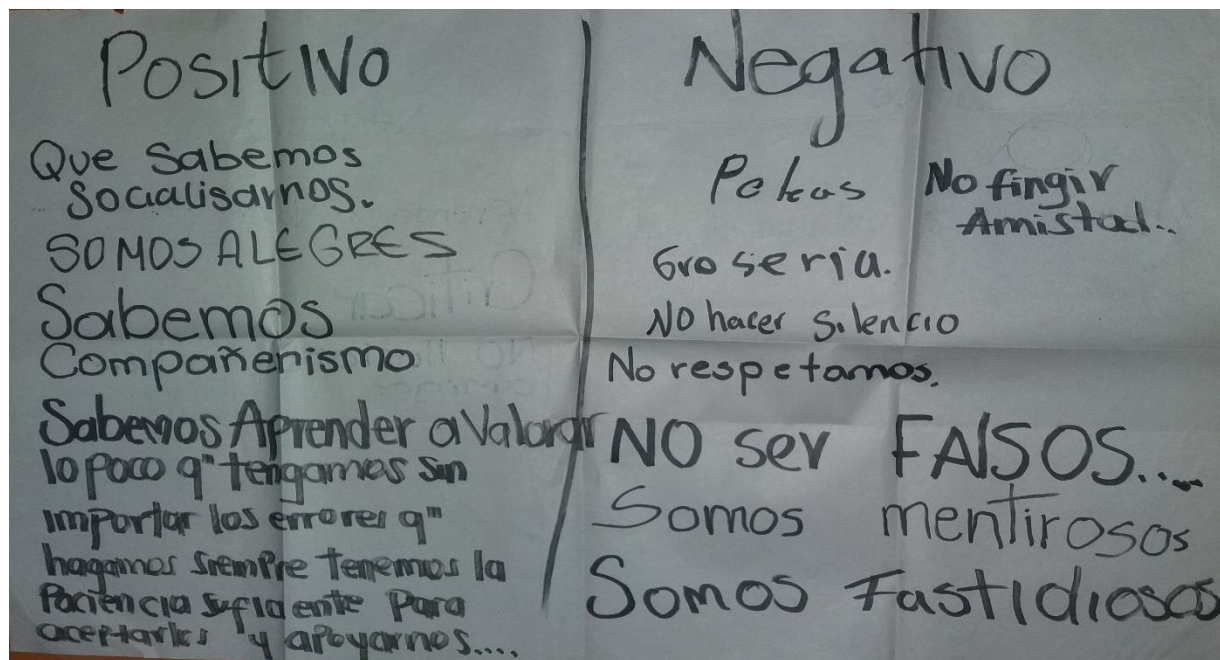 Positivo
Que Sabemos
Socialisarnos.
SOMOS ALEGRES
Sabemos
Compañerismo
Sabemos Aprender a Valorar
lo poco q" tengamos sin
importar los errores q"
hagamos siempre tenemos la
Paciencia suficiente Para
aceptarlos y apoyarnos....
Negativo
No fingir
Amistad..
Groseria.
NO hacer silencio
No respetamos.
NO Ser FAlSOS....
Somos mentirosos
Somos Fastidiosos